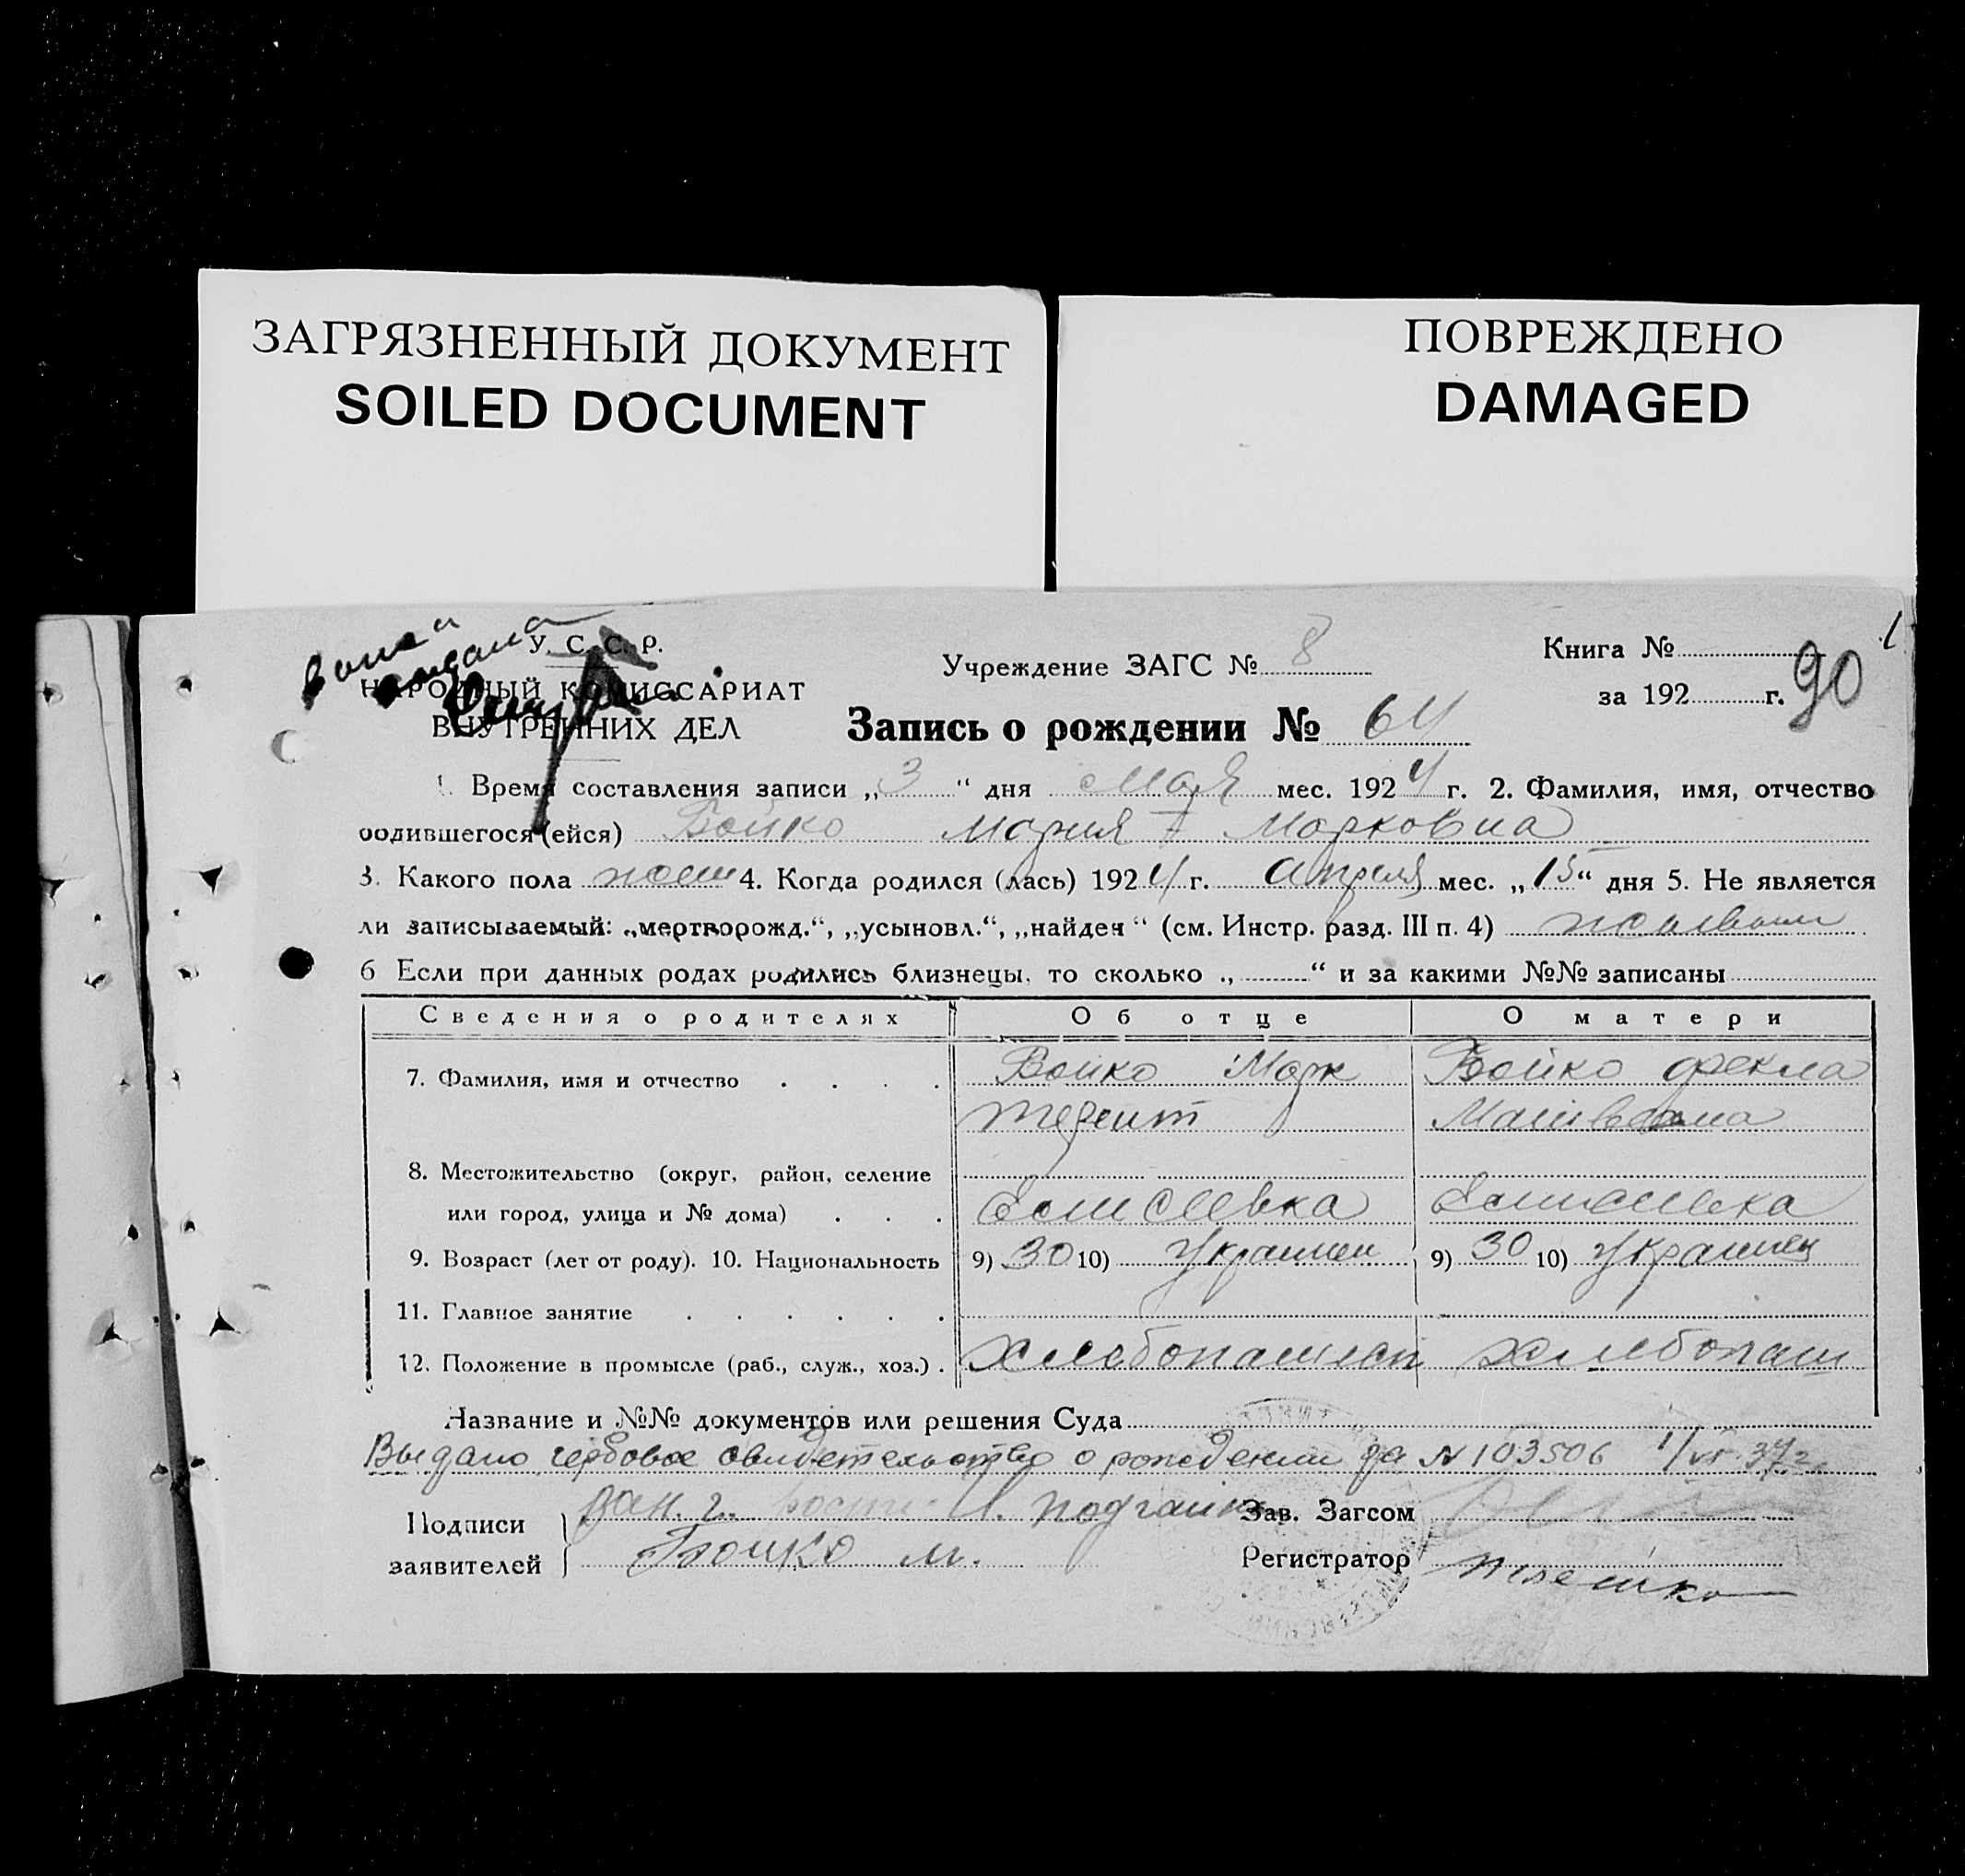 ЗАГРЯЗНЕННЫЙ ДОКУМЕНТ
SOILED DOCUMENT
ПОВРЕЖДЕНО
DAMAGED
У. С. С. Р.
НАРОДНЫЙ КОМИССАРИАТ
ВНУТРЕННИХ ДЕЛ
Учреждение ЗАГС № 8
Книга №
за 192 г. 90
Запись о рождении № 64
1. Время составления записи „3“ дня Мая мес. 1924 г. 2. Фамилия, имя, отчество
родившегося (ейся) Бойко Мария Марковна
3. Какого пола жен 4. Когда родился (лась) 1924 г. Апреля мес. „15“ дня 5. Не является
ли записываемый: „мертворожд.“, „усыновл.“, „найден“ (см. Инстр. разд. III п. 4)
6 Если при данных родах родились близнецы, то сколько „ “ и за какими №№ записаны
Сведения о родителях Об отце О матери
7. Фамилия, имя и отчество . . . . Бойко Марк Бойко Фекла
8. Местожительство (округ, район, селение
или город, улица и № дома) . . .
9. Возраст (лет от роду). 10. Национальность 9) 30 10) Украинец 9) 30 10) Украинец
11. Главное занятие . . . . . .
12. Положение в промысле (раб., служ., хоз.) . хлебопашец хлебопаш
Название и №№ документов или решения Суда
Выдано гербовое свидетельство о рождении за № 103506 1/VI 37г.
Подписи
заявителей
Бойко М.
Зав. Загсом
Регистратор